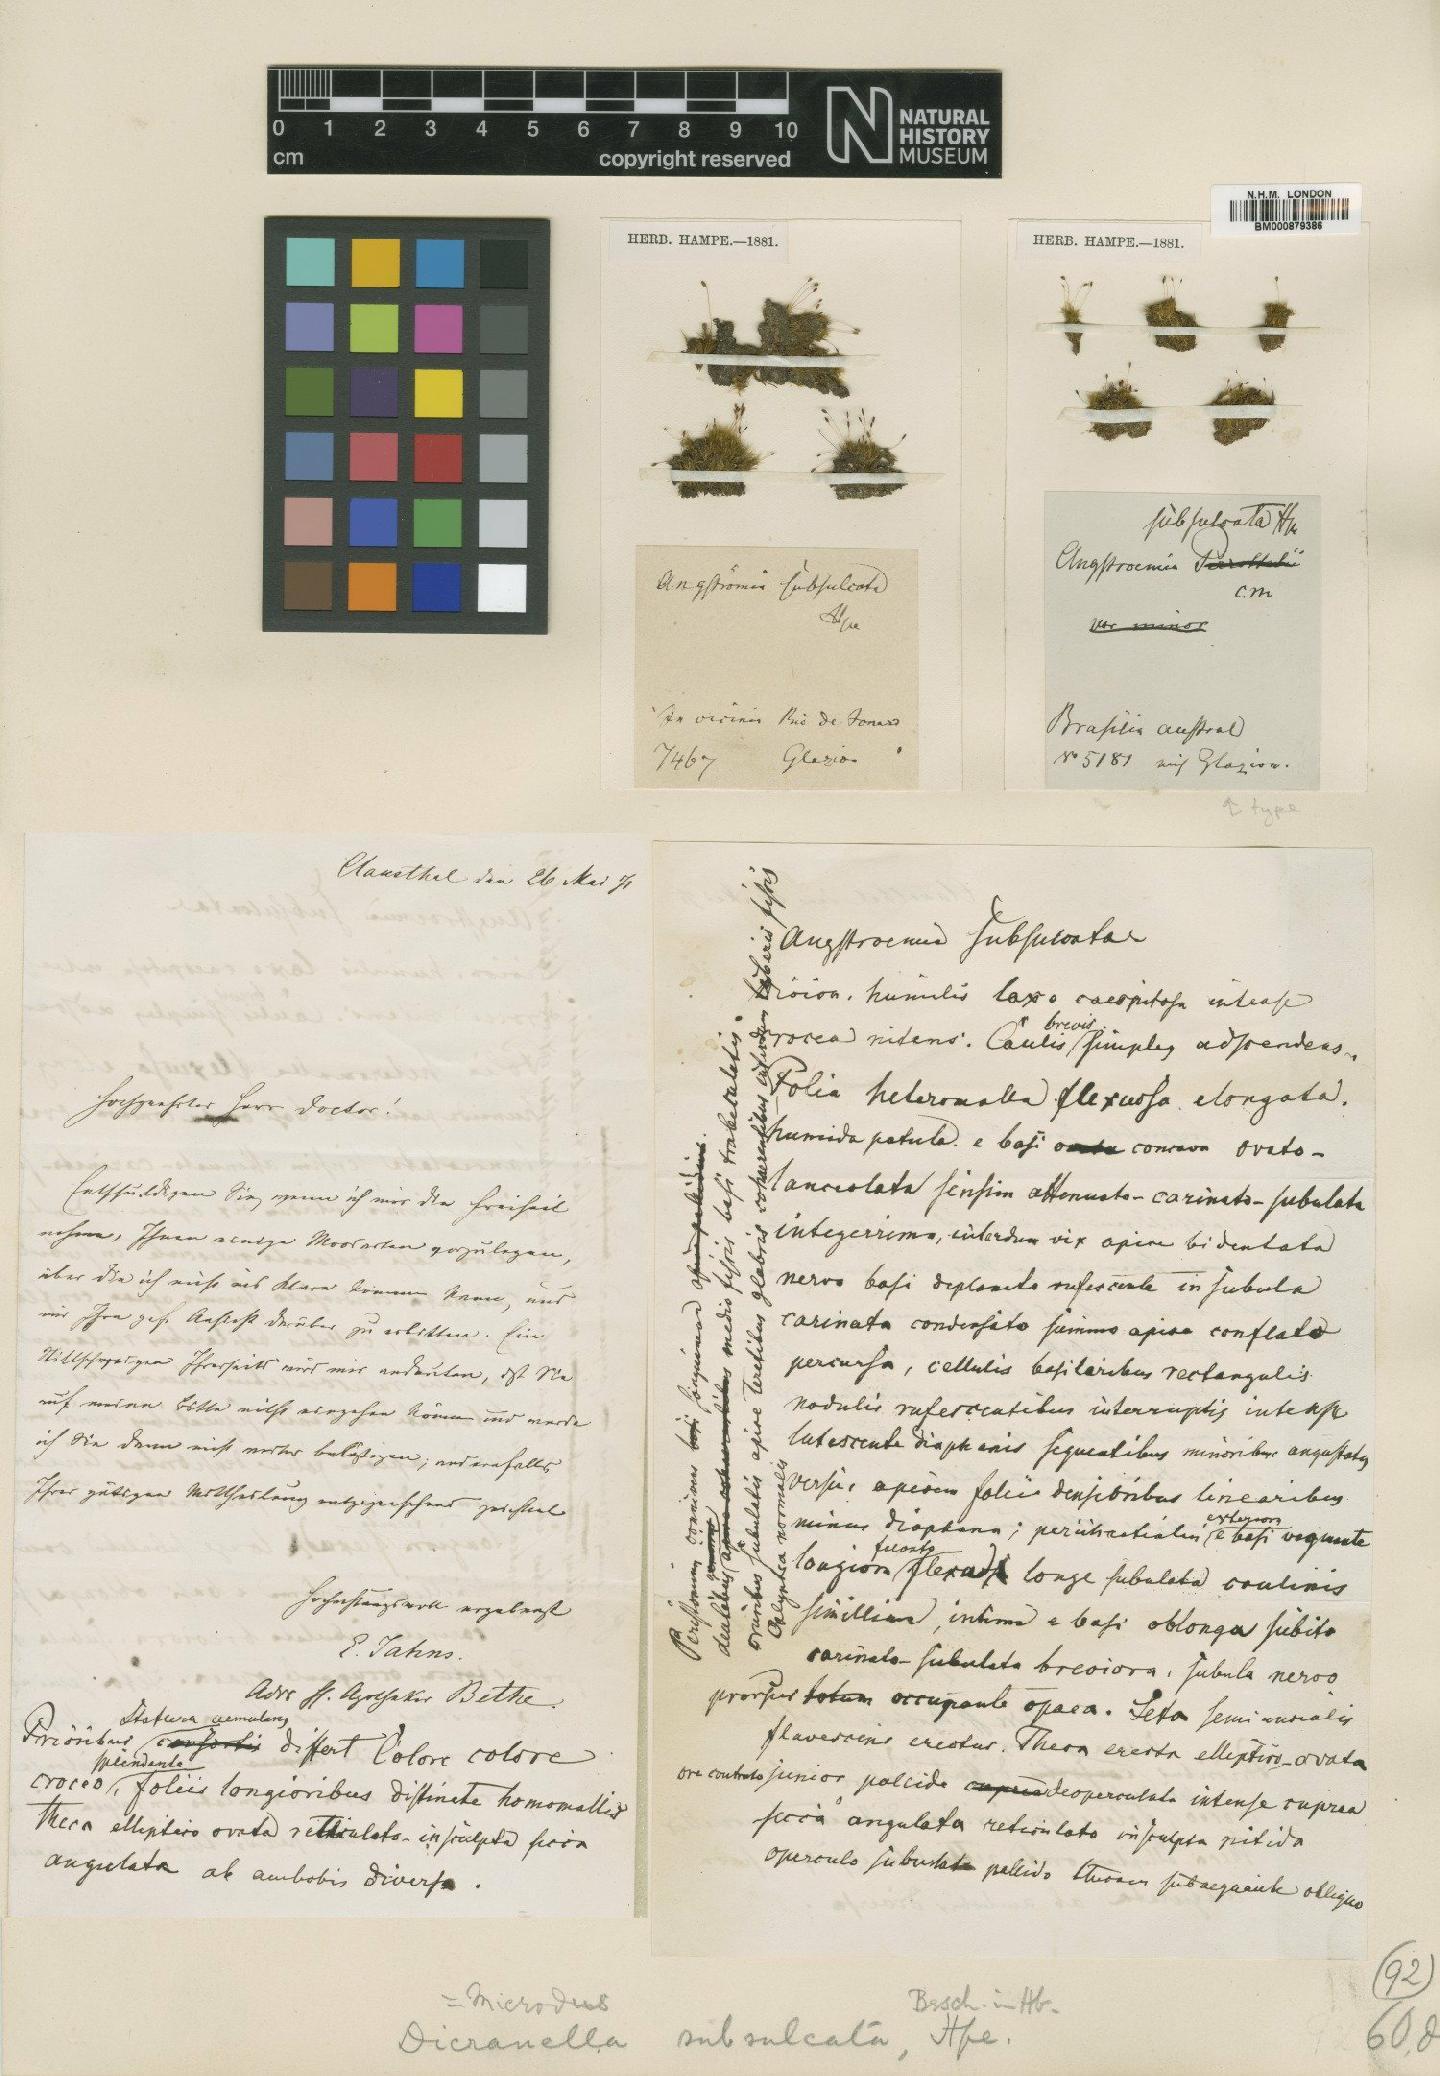 0 1 2 3 4 5 6 7 8 9 10
cm
copyright reserved
NATURAL
HISTORY
MUSEUM
N.H.M. LONDON
BM000879386
HERB. HAMPE.—1881.
Angströmia subsulcata
Hpe
In vicinis Rio de
7467 Glaziou
HERB. HAMPE.—1881.
subsulcata Hpe
Angstroemia
C.M
var minor
Brasilia austral
No 5181 mis Glaziou.
↑ type
Clausthal den 26 Mai 71
Hochgeehrter Herr Doctor!
Entschuldigen Sie, wenn ich mir die Freiheit
nehme, Ihnen einige Moosarten vorzulegen,
über die ich nicht ins Klare kommen kann, und
mir Ihre gef. Ansicht darüber zu erbitten. Ein
Stillschweigen Ihrerseits wird mir andeuten, daß Sie
auf meine Bitte nicht eingehen können und werde
ich Sie dann nicht weiter belästigen; andernfalls
Ihrer gütigen Mittheilung entgegensehend zeichnet
Hochachtungsvoll ergebenst
E. Jahns.
Adr H. Apotheker Bethe.
Statura aemulans
Prioribus differt colore
splendente
croceo, foliis longioribus distincte homomallis
theca elliptico ovata reticulato-insculpta sicca
angulata ab ambobis diversa.
Angstroemia subsulcata
Dioica. humilis laxe caespitosa intense
crocea nitens. Caulis brevis simplex adscendens.
Folia heteromalla flexuosa elongata.
humida patula. e basi concava ovato-
lanceolata sensim attenuato-carinato-subulata
integerrima, interdum vix apice bidentata
nervo basi deplanato rufescente in subula
carinata condensato summo apice conflato
percursa, cellulis basilaribus rectangulis
nodulis rufescentibus interruptis intense
lutescente diaphanis sequentibus minoribus angustatis
versus apicem folii densioribus linearibus
minus diaphana; perichaetialia externa e basi vaginante
longiora longe subulata caulinis
simillima, intima e basi oblonga subito
carinato-subulata breviora, subula nervo
prorsus totum occupante opaca. Seta semiuncialis
flavescens erectus. Theca erecta elliptico-ovata
ore contracto junior pallida deoperculata intense cuprea
sicca angulata reticulato insculpta nitida
operculo subulato pallido thecam subaequante obliquo
Calyptra normalis
= Microdus Besch. in Hb.
Dicranella subsulcata, Hpe.
(92)